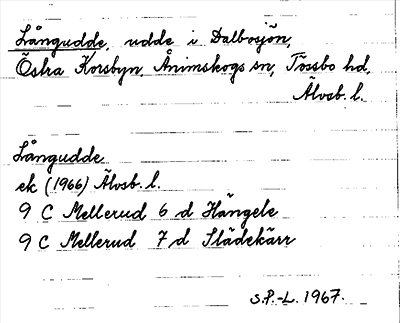 Långudde, udde i Dalbosjön,
Östra Korsbyn, Ånimskogs sn, Tössbo hd,
Älvsb. l.
Långudde
ek (1966) Älvsb. l.
9 C Mellerud 6 d Hängele
9 C Mellerud 7 d Slädekärr
S.P.-L. 1967.